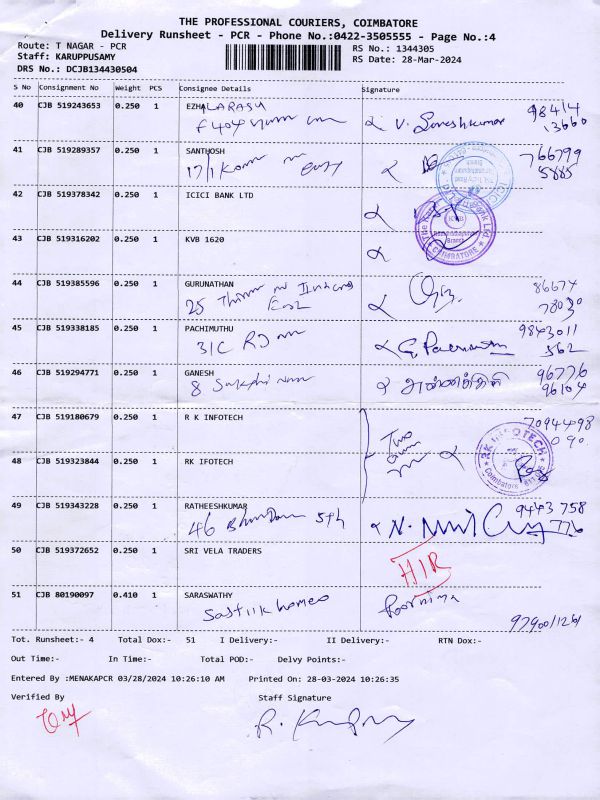 THE PROFESSIONAL COURIERS, COIMBATORE
Delivery Runsheet - PCR - Phone No.:0422-3505555 - Page No.:4
Route: T NAGAR - PCR
RS No.: 1344305
Staff: KARUPPUSAMY
RS Date: 28-Mar-2024
DRS No.: DCJB134430504
S No Consignment No Weight PCS Consignee Details Signature
40 CJB 519243653 0.250 1 EZHALARASU
V. Sureshkumar 98414 13660
41 CJB 519289357 0.250 1 SANTHOSH
17/1 766799 5885
42 CJB 519378342 0.250 1 ICICI BANK LTD
43 CJB 519316202 0.250 1 KVB 1620
KVB
COIMBATORE
44 CJB 519385596 0.250 1 GURUNATHAN
25 East 86674 78030
45 CJB 519338185 0.250 1 PACHIMUTHU
31C 9843011 562
46 CJB 519294771 0.250 1 GANESH
8 96776 96104
47 CJB 519180679 0.250 1 R K INFOTECH
Two 7094498 090
RK INFOTECH
Coimbatore
48 CJB 519323844 0.250 1 RK IFOTECH
49 CJB 519343228 0.250 1 RATHEESHKUMAR
46 5th 9443 758 776
50 CJB 519372652 0.250 1 SRI VELA TRADERS
HIR
51 CJB 80190097 0.410 1 SARASWATHY
Sastiik homeo Poornima
97900/1261
Tot. Runsheet:- 4 Total Dox:- 51 I Delivery:- II Delivery:- RTN Dox:-
Out Time:- In Time:- Total POD:- Delvy Points:-
Entered By :MENAKAPCR 03/28/2024 10:26:10 AM Printed On: 28-03-2024 10:26:35
Verified By Staff Signature